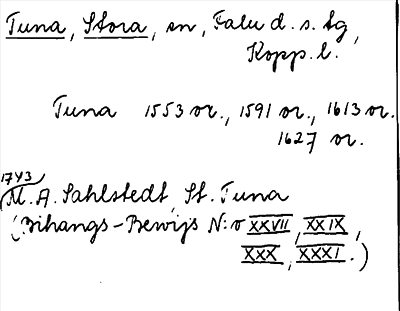 Tuna, Stora, sn, Falu d. s. tg,
Kopp. l.
Tuna 1553 or., 1591 or., 1613 or.
1627 or.
1743
M. A. Sahlstedt, St. Tuna
(Bihangs-Bewijs N:o XXVII, XXIX,
XXX, XXXI.)